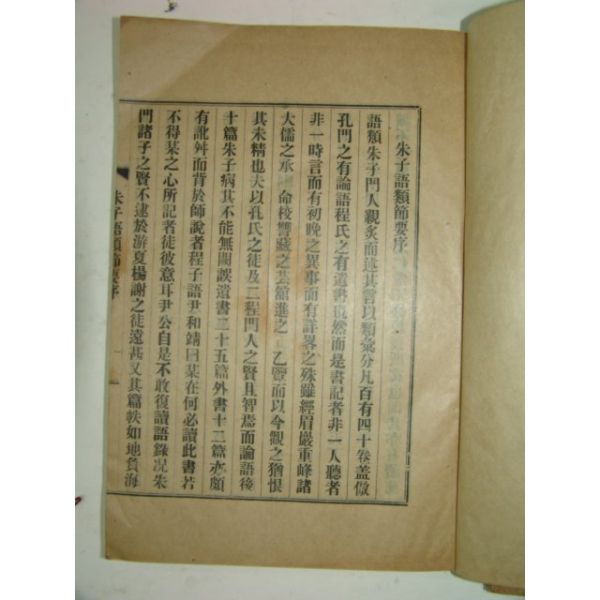 朱子語類節要序
語類朱子門人親炙而述其言以類彙分凡百有四十卷盖倣
孔門之有論語程氏之有遺書也然而是書記者非一人聽者
非一時言而有初晚之異事而有詳畧之殊雖經眉巖重峰諸
大儒之承命校讐藏之芸舘進之乙覽而以今觀之猶恨
其未精也夫以孔氏之徒及二程門人之賢且智焉而論語後
十篇朱子病其不能無闕誤遺書二十五篇外書十二篇亦頗
有訛舛而背於師說者程子語尹和靖曰某在何必讀此書若
不得某之心所記者徒彼意耳尹公自是不敢復讀語錄况朱
門諸子之賢不逮於游夏楊謝之徒遠甚又其篇帙如地負海
朱子語類節要序
一